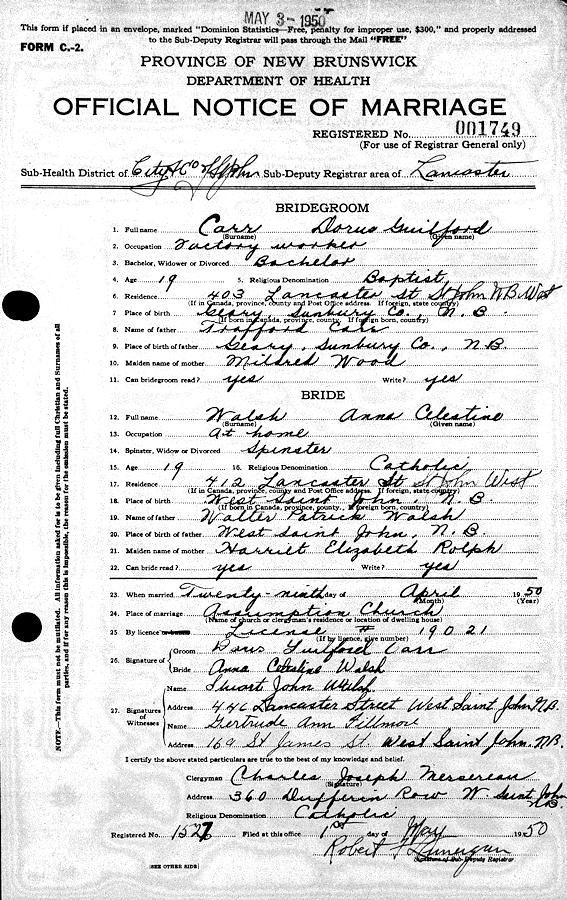 MAY 3 - 1950
This form if placed in an envelope, marked "Dominion Statistics—Free, penalty for improper use, $300," and properly addressed
to the Sub-Deputy Registrar will pass through the Mail "FREE"
FORM C.-2.
PROVINCE OF NEW BRUNSWICK
DEPARTMENT OF HEALTH
OFFICIAL NOTICE OF MARRIAGE
REGISTERED No. 001749
(For use of Registrar General only)
Sub-Health District of City & Co of St John Sub-Deputy Registrar area of Lancaster
BRIDEGROOM
1. Full name Carr Dorus Guilford
(Surname) (Given name)
2. Occupation Factory worker
3. Bachelor, Widower or Divorced Bachelor
4. Age 19 5. Religious Denomination Baptist
6. Residence 403 Lancaster St. St John N B West
(If in Canada, province, county and Post Office address. If foreign, state country)
7. Place of birth Geary Sunbury Co. N. B.
(If born in Canada, province, county. If foreign born, country)
8. Name of father Trafford Carr
9. Place of birth of father Geary, Sunbury Co., N.B.
10. Maiden name of mother Mildred Wood
11. Can bridegroom read? yes Write? yes
BRIDE
12. Full name Walsh Anna Celestine
(Surname) (Given name)
13. Occupation At home
14. Spinster, Widow or Divorced Spinster
15. Age 19 16. Religious Denomination Catholic
17. Residence 412 Lancaster St St John West
(If in Canada, province, county and Post Office address. If foreign, state country)
18. Place of birth West Saint John N. B.
(If born in Canada, province, county., If foreign born, country)
19. Name of father Walter Patrick Walsh
20. Place of birth of father West Saint John, N. B.
21. Maiden name of mother Harriet Elizabeth Rolph
22. Can bride read? yes Write? yes
23. When married Twenty-ninth day of April 1950
(Month) (Year)
24. Place of marriage Assumption Church
(Name of church or clergyman's residence or location of dwelling house)
25 By licence License # 19021
(If by licence, give number)
26. Signature of Groom Dorus Guilford Carr
Bride Anna Celestine Walsh
27. Signatures of Witnesses
Name Stuart John Walsh
Address 446 Lancaster Street West Saint John N.B.
Name Gertrude Ann Fillmore
Address 169 St James St. West Saint John. N.B.
I certify the above stated particulars are true to the best of my knowledge and belief.
Clergyman Charles Joseph Mersereau
(Signature)
Address 360 Dufferin Row W. Saint John N.B.
Religious Denomination Catholic
Registered No. 1527 Filed at this office 1st day of May 1950
Robert F
Signature of Sub-Deputy Registrar
[SEE OTHER SIDE]
NOTE.—This form must not be mutilated. All information asked for is to be given including full Christian and Surnames of all
parties, and if for any reason this is impossible, the reason for the omission must be stated.